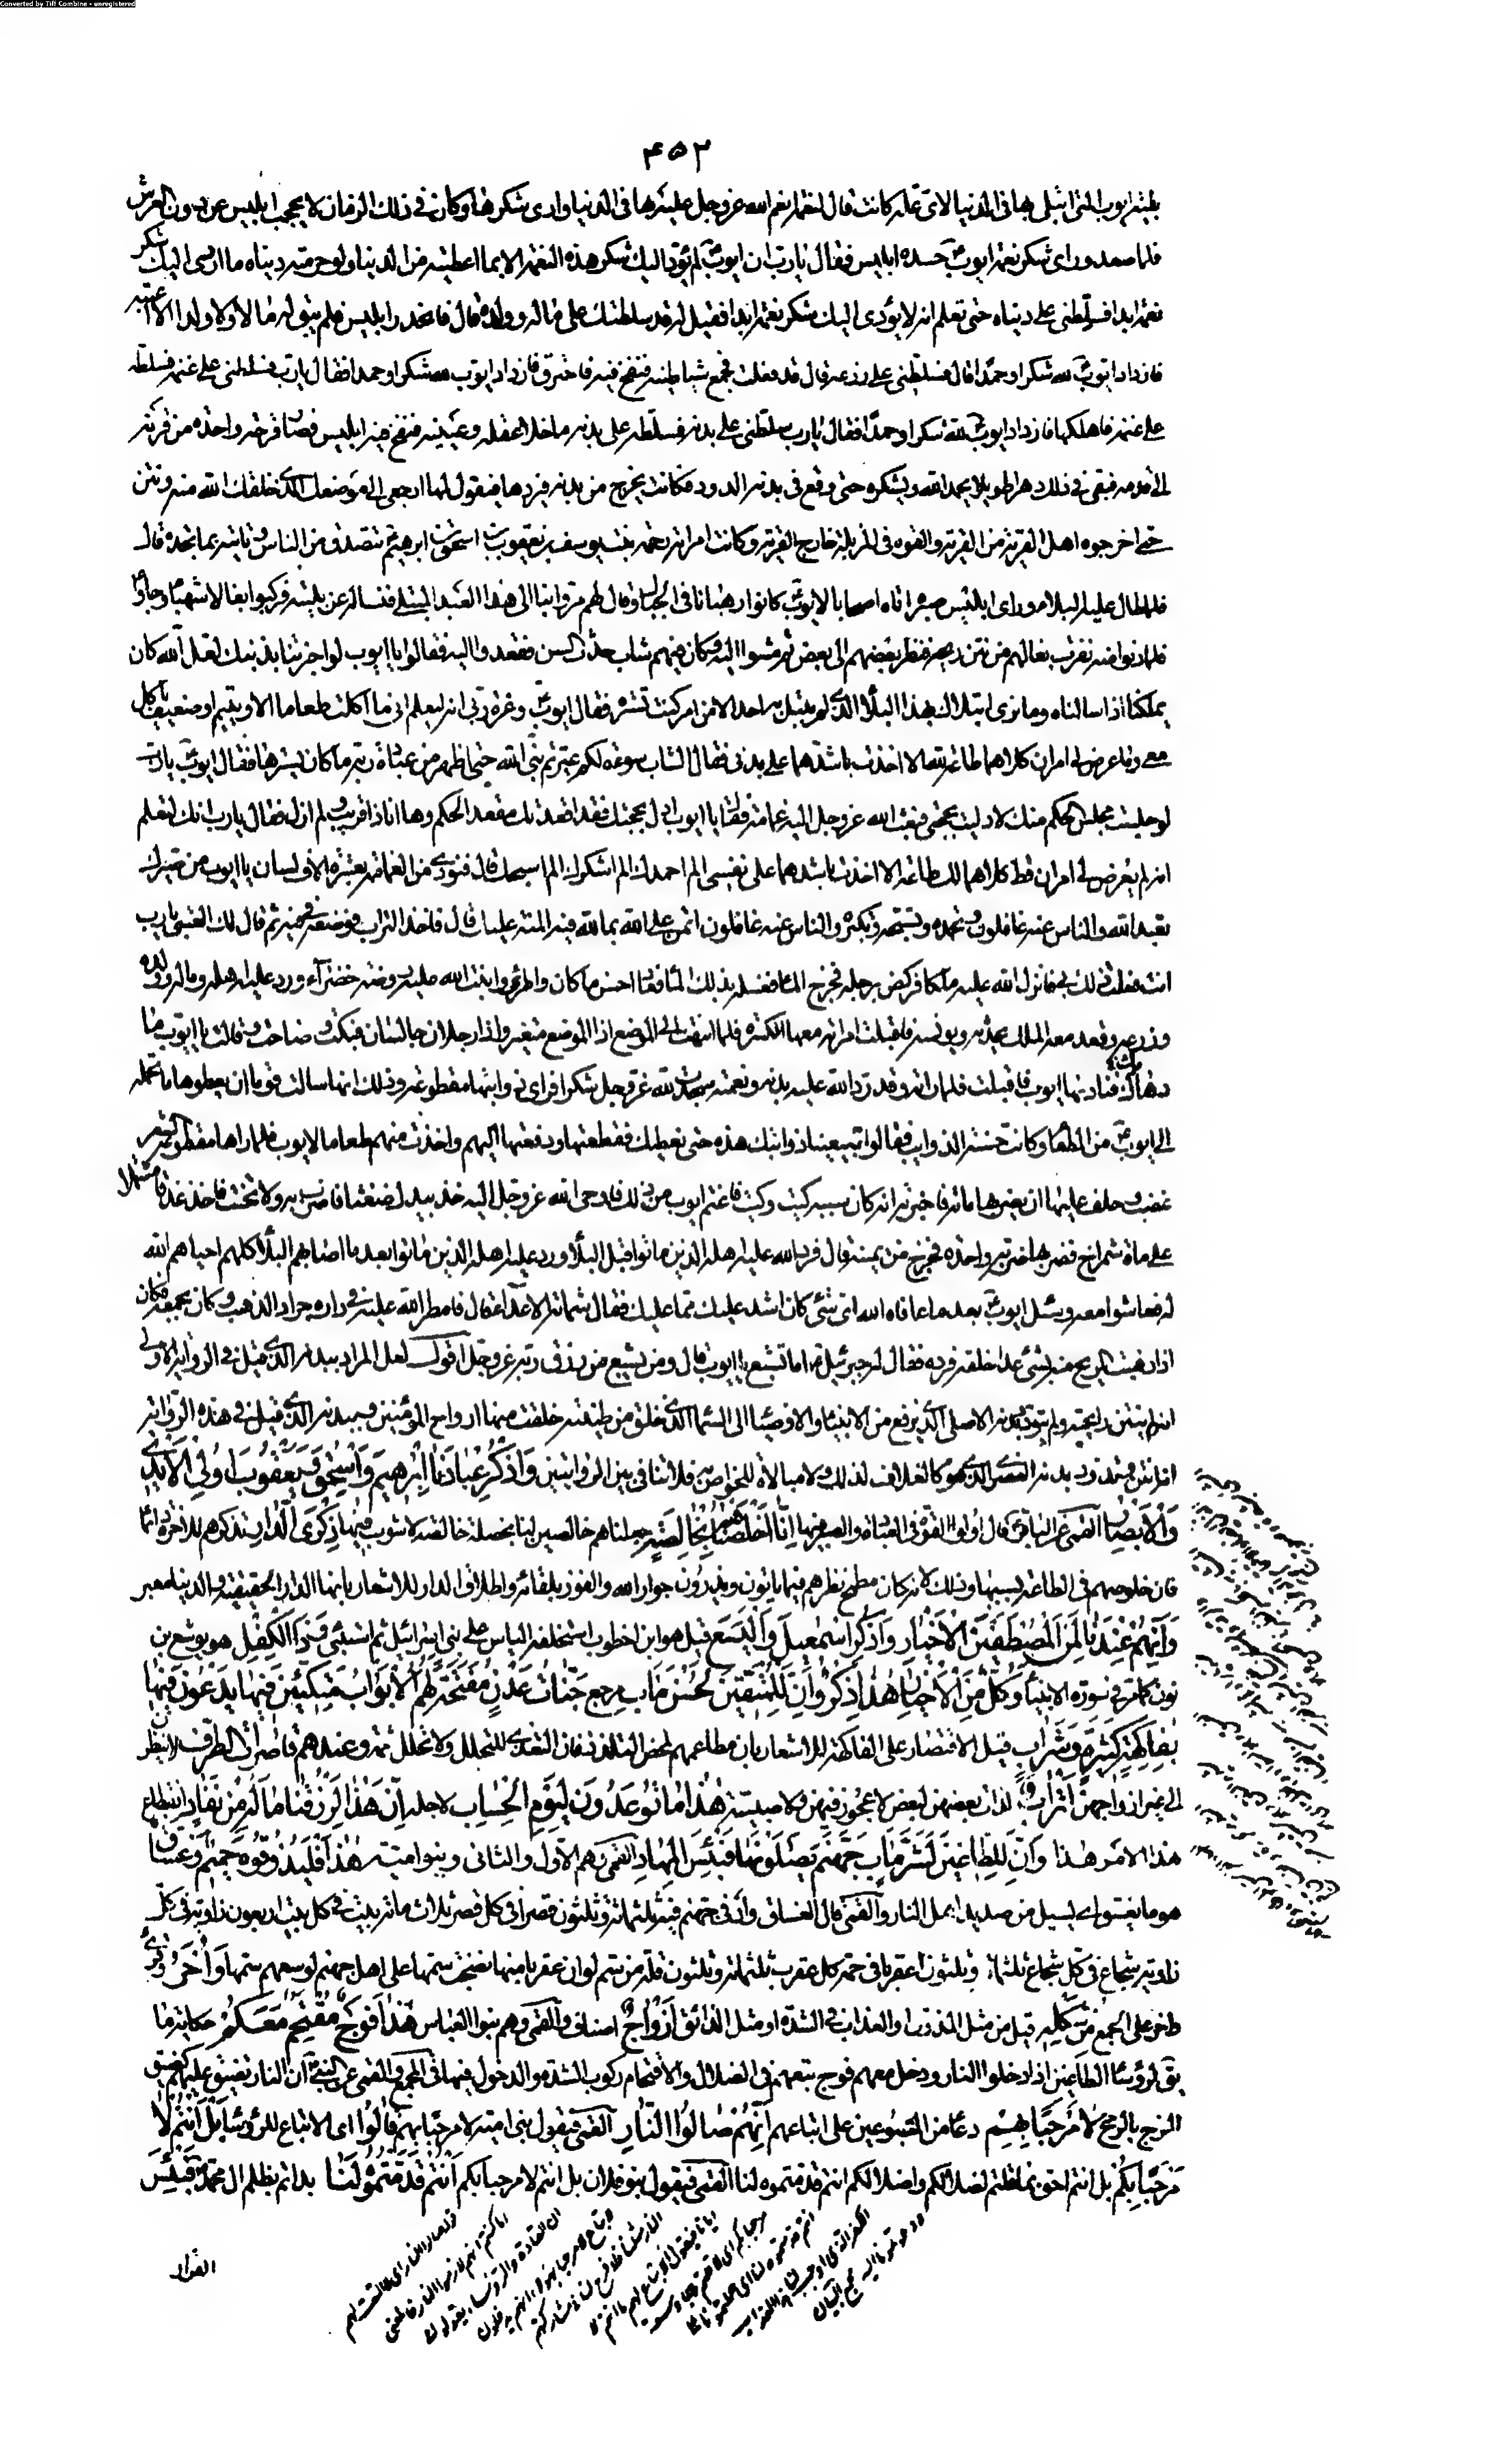 Converted by Tiff Combine - unregistered
٤٥٢
بليته ايوب التى ابتلى بها فى الدنيا لاى علة كانت قال لنعمة انعم الله عز وجل عليه بها فى الدنيا وادى شكرها وكان فى ذلك الزمان لا يحجب ابليس عن دون العرش
فلما صعد وراى شكر نعمة ايوب حسده ابليس فقال يا رب ان ايوب لم يؤد اليك شكر هذه النعمة الا بما اعطيته من الدنيا ولو حرمته دنياه ما ادى اليك شكر
نعمة ابدا فسلطنى على دنياه حتى تعلم انه لا يؤدى اليك شكر نعمة ابدا فقيل له قد سلطتك على ماله وولده قال فانحدر ابليس فلم يبق له مالا ولا ولدا الا اعطبه
فازداد ايوب لله شكرا وحمدا قال فسلطنى على زرعه قال قد فعلت فجمع شياطينه فنفخ فيه فاحترق فازداد ايوب لله شكرا وحمدا فقال يا رب فسلطنى على غنمه فسلطه
على غنمه فاهلكها فازداد ايوب لله شكرا وحمدا فقال يا رب سلطنى على بدنه فسلطه على بدنه ما خلا عقله وعينيه فنفخ فيه ابليس فصار قرحة واحدة من قرنه
الى قدمه فبقى فى ذلك دهرا طويلا يحمد الله ويشكره حتى وقع فى بدنه الدود فكانت تخرج من بدنه فيردها فيقول لها ارجعى الى موضعك الذى خلقك الله منه ونتن
حتى اخرجوه اهل القرية من القرية والقوه فى المزبلة خارج القرية وكانت امراته رحمة بنت يوسف بن يعقوب بن اسحق بن ابرهيم تتصدق من الناس وتاتيه بما تجده قال
فلما طال عليه البلاء وراى ابليس صبره اتاه اصحابا لايوب كانوا رهبانا فى الجبال وقال لهم مروا بنا الى هذا العبد المبتلى فنساله عن بليته فركبوا بغالا شهبا وجاؤا
فلما دنوا منه نفرت بغالهم من نتن ريحه فنظر بعضهم الى بعض ثم مشوا اليه وكان فيهم شاب حدث السن فقعدوا اليه فقالوا يا ايوب لو اخبرتنا بذنبك لعل الله كان
يملكنا اذا سالناه وما نرى ابتلاك بهذا البلاء الذى لم يبتل به احد الا من امر كنت تستره فقال ايوب وعزة ربى انه ليعلم انى ما اكلت طعاما الا ويتيم او ضعيف ياكل
معى وما عرض لى امران كلاهما طاعة لله الا اخذت باشدهما على بدنى فقال الشاب سوءة لكم عيرتم نبى الله حتى اظهر من عبادة ربه ما كان يسترها فقال ايوب يا رب
لو جلست مجلس الحكم منك لادليت بحجتى فبعث الله عز وجل اليه غمامة فقال يا ايوب ادل بحجتك فقد اقعدتك مقعد الحكم وها انا ذا قريب ولم ازل فقال يا رب انك لتعلم
انه لم يعرض لى امران قط كلاهما لك طاعة الا اخذت باشدهما على نفسى الم احمدك الم اشكرك الم اسبحك قال فنودى من الغمامة بعشرة الاف لسان يا ايوب من صيرك
تعبد الله والناس عنه غافلون وتحمده وتسبحه وتكبره والناس عنه غافلون اتمن على الله بما لله فيه المنة عليك قال فاخذ التراب فوضعه فى فيه ثم قال لك العتبى يا رب
انت فعلت ذلك بى فانزل الله عليه ملكا فركض برجله فخرج الماء فغسله بذلك الماء فعاد احسن ما كان واطرء وانبت الله عليه روضة خضراء ورد عليه اهله وماله وولده
وزرعه وقعد معه الملك يحدثه ويونسه فاقبلت امراته معها الكسرة فلما انتهت الى الموضع اذا الموضع متغير واذا رجلان جالسان فبكت وصاحت وقالت يا ايوب ما
دهاك فناديها ايوب فاقبلت فلما راته وقد رد الله عليه بدنه ونعمته سجدت لله عز وجل شكرا فراى ذوابتها مقطوعة وذلك انها سالت قوما ان يعطوها ما تحمله
الى ايوب من الطعام وكانت حسنة الذوايب فقالوا تبيعينا ذوائبك هذه حتى نعطيك فقطعتها ودفعتها اليهم واخذت منهم طعاما لايوب فلما راها مقطوعة الشعر
غضب وحلف عليها ان يضربها مائة فاخبرته انه كان سببه كيت وكيت فاغتم ايوب من ذلك فاوحى الله عز وجل اليه خذ بيدك ضغثا فاضرب به ولا تحنث فاخذ عذقا مشتملا
على مائة شمراخ فضربها ضربة واحدة فخرج من يمينه قال فرد الله عليه اهله الذين ماتوا قبل البلاء ورد عليه اهله الذين ماتوا بعد ما اصابهم البلاء كلهم احياهم الله
له فعاشوا معه وسئل ايوب بعد ما عافاه الله اى شئ كان اشد عليك مما عليك فقال شماتة الاعداء قال فامطر الله عليه فى داره جراد الذهب وكان يجمعه فكان
اذا ذهبت الريح منه بشئ عدا خلفه فرده فقال له جبرئيل اما تشبع يا ايوب قال ومن يشبع من رزق ربه عز وجل اقول لعل المراد ببدنه الذى قيل فى الرواية الاولى
انه لم ينتن رايحته ولم يتدود بدنه الاصلى الذى يرفع من الانبياء والاوصياء الى السماء الذى خلق من طينته خلقت منها ارواح المؤمنين وببدنه الذى قيل فى هذه الرواية
انه انتن وتدود بدنه العنصرى الذى هو كالغلاف لذلك ولا مبالاة للخواص به فلا تنافى بين الروايتين وَاذْكُرْ عِبَادَنَا اِبْرٰهِيمَ وَاِسْحٰقَ وَيَعْقُوبَ اُولِي الْاَيْدِي
وَالْاَبْصَارِ القمى عن الباقر قال اولوا القوة فى العبادة والبصر فيها اِنَّا اَخْلَصْنَاهُمْ بِخَالِصَةٍ جعلناهم خالصين لنا بخصلة خالصة لا شوب فيها ذِكْرَى الدَّارِ تذكرهم للاخرة دائما
فان خلوصهم فى الطاعة بسببها وذلك لانه كان مطمح نظرهم فيما ياتون ويذرون جوار الله والفوز بلقائه واطلاق الدار للاشعار بانها الدار الحقيقية والدنيا معبر
وَاِنَّهُمْ عِنْدَنَا لَمِنَ الْمُصْطَفَيْنَ الْاَخْيَارِ وَاذْكُرْ اِسْمٰعِيلَ وَالْيَسَعَ قيل هو ابن اخطوب استخلفه الياس على بنى اسرائيل ثم استنبئ وَذَا الْكِفْلِ هو يوشع بن
نون كما مر فى سورة الانبياء وَكُلٌّ مِنَ الْاَخْيَارِ هٰذَا ذِكْرٌ وَاِنَّ لِلْمُتَّقِينَ لَحُسْنَ مَآبٍ مرجع جَنَّاتِ عَدْنٍ مُفَتَّحَةً لَهُمُ الْاَبْوَابُ مُتَّكِئِينَ فِيهَا يَدْعُونَ فِيهَا
بِفَاكِهَةٍ كَثِيرَةٍ وَشَرَابٍ قيل الاقتصار على الفاكهة للاشعار بان مطاعمهم لمحض التلذذ فان التغذى للتحلل ولا تحلل ثمه وَعِنْدَهُمْ قَاصِرَاتُ الطَّرْفِ لا ينظرن
الى غير ازواجهن اَتْرَابٌ لذات بعضهن لبعض لا عجوز فيهن ولا صبية هٰذَا مَا تُوعَدُونَ لِيَوْمِ الْحِسَابِ لاجله اِنَّ هٰذَا لَرِزْقُنَا مَا لَهُ مِنْ نَفَادٍ انقطاع
هٰذَا الامر هذا وَاِنَّ لِلطَّاغِينَ لَشَرَّ مَآبٍ جَهَنَّمَ يَصْلَوْنَهَا فَبِئْسَ الْمِهَادُ القمى هم الاول والثانى وبنو امية هٰذَا فَلْيَذُوقُوهُ حَمِيمٌ وَغَسَّاقٌ
هو ما يغسق اى يسيل من صديد اهل النار والقمى قال الغساق واد فى جهنم فيه ثلثمائة وثلثون قصرا فى كل قصر ثلاث مائة بيت فى كل بيت اربعون زاوية فى كل
زاوية شجاع فى كل شجاع ثلثمائة وثلثون عقربا فى حمة كل عقرب ثلثمائة وثلثون قلة من سم لو ان عقربا منها نضحت سمها على اهل جهنم لوسعهم سمها وَاُخَرُ وقرئ
اخر على الجمع مِنْ شَكْلِهِ قيل من مثل المذوق او العذاب فى الشدة او مثل الذائق اَزْوَاجٌ اصناف والقمى وهم بنوا العباس هٰذَا فَوْجٌ مُقْتَحِمٌ مَعَكُمْ حكاية ما
يق لرؤساء الطاغين اذا دخلوا النار ودخل معهم فوج تبعهم فى الضلال والاقتحام ركوب الشدة والدخول فيها فى المجمع والقمى عن النبى ان النار تضيق عليهم كضيق
الزج بالرمح لَا مَرْحَبًا بِهِمْ دعاء من المتبوعين على اتباعهم اِنَّهُمْ صَالُوا النَّارِ القمى فيقول بنو امية لا مرحبا بهم قَالُوا اى الاتباع للرؤساء بَلْ اَنْتُمْ لَا
مَرْحَبًا بِكُمْ بل انتم احق بما قلتم لضلالكم واضلالكم انتم قدمتموه لنا القمى فيقول بنو فلان بل انتم لا مرحبا بكم اَنْتُمْ قَدَّمْتُمُوهُ لَنَا بداتم بظلم ال محمد فَبِئْسَ
القرار